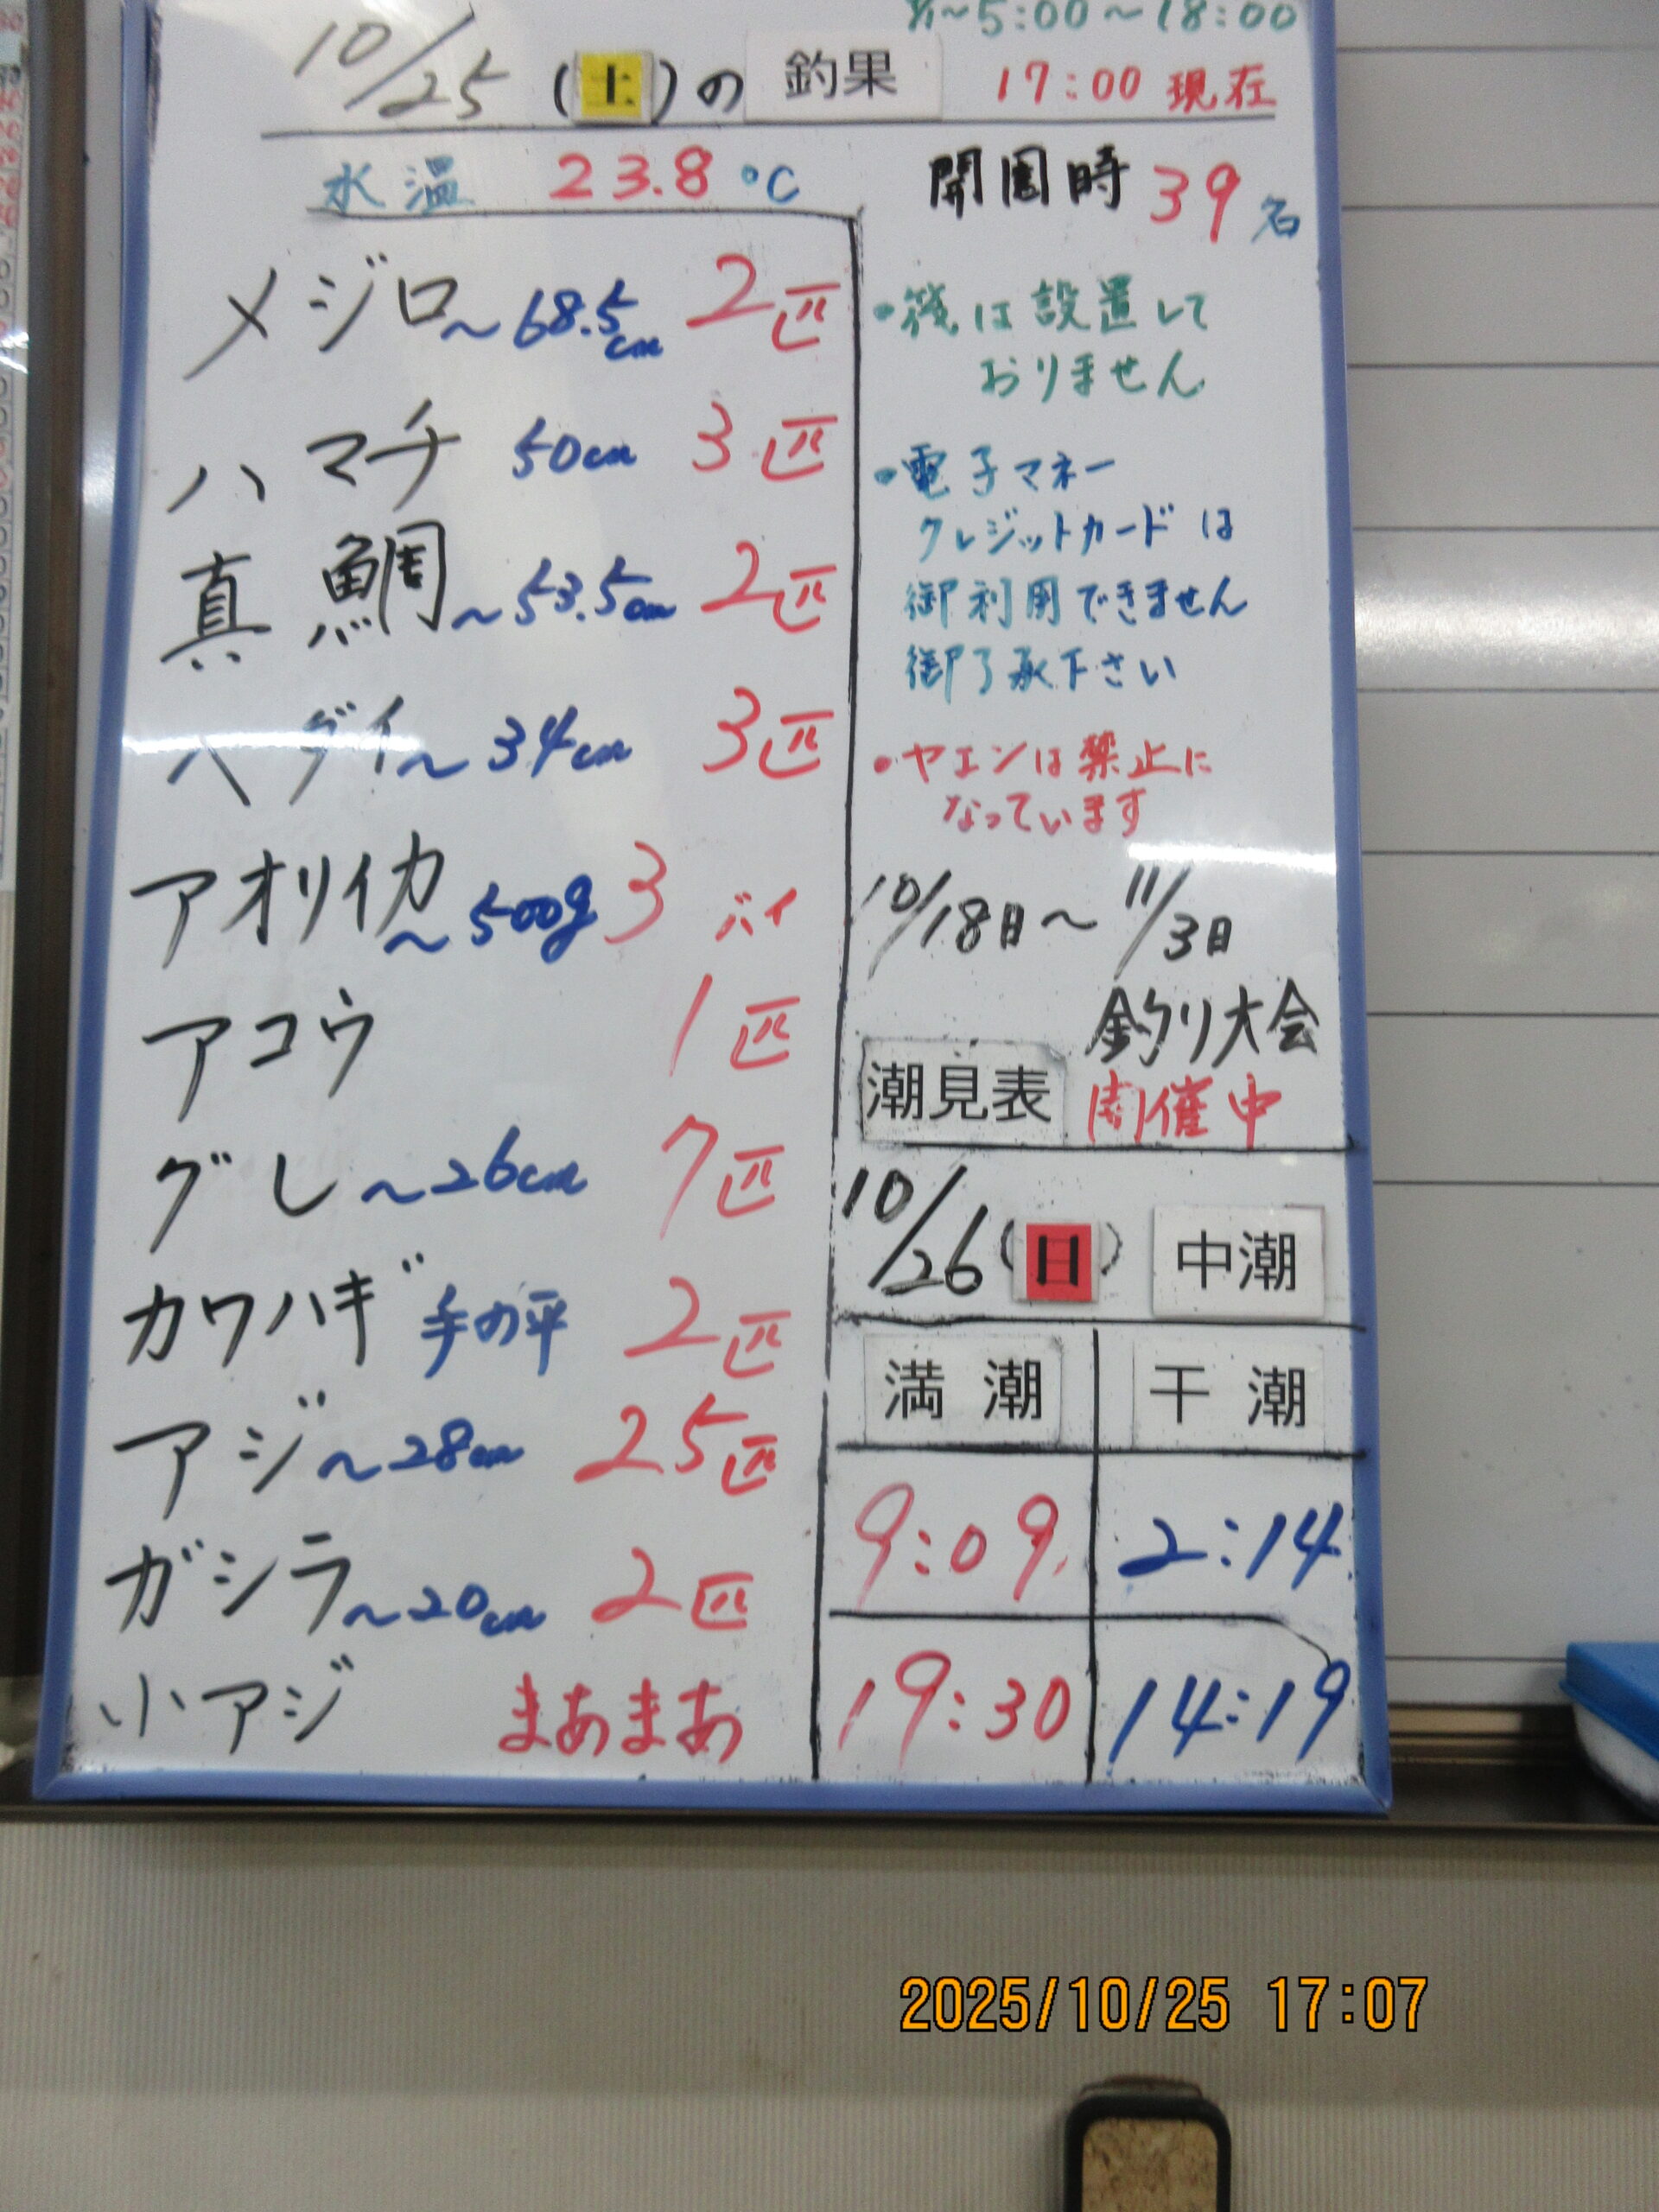 ~5:00~18:00
10/25(土)の 釣果 17:00 現在
水温 23.8℃ 開園時 39名
メジロ~68.5cm 2匹
ハマチ 50cm 3匹
真鯛~53.5cm 2匹
ヘダイ~34cm 3匹
アオリイカ~500g 3バイ
アコウ 1匹
グレ~26cm 7匹
カワハギ 手の平 2匹
アジ~28cm 25匹
ガシラ~20cm 2匹
小アジ まあまあ
・筏は設置して
おりません
・電子マネー
クレジットカードは
御利用できません
御了承下さい
・ヤエンは禁止に
なっています
10/18日~11/3日
釣り大会
開催中
潮見表
10/26(日) 中潮
満潮 干潮
9:09 2:14
19:30 14:19
2025/10/25 17:07